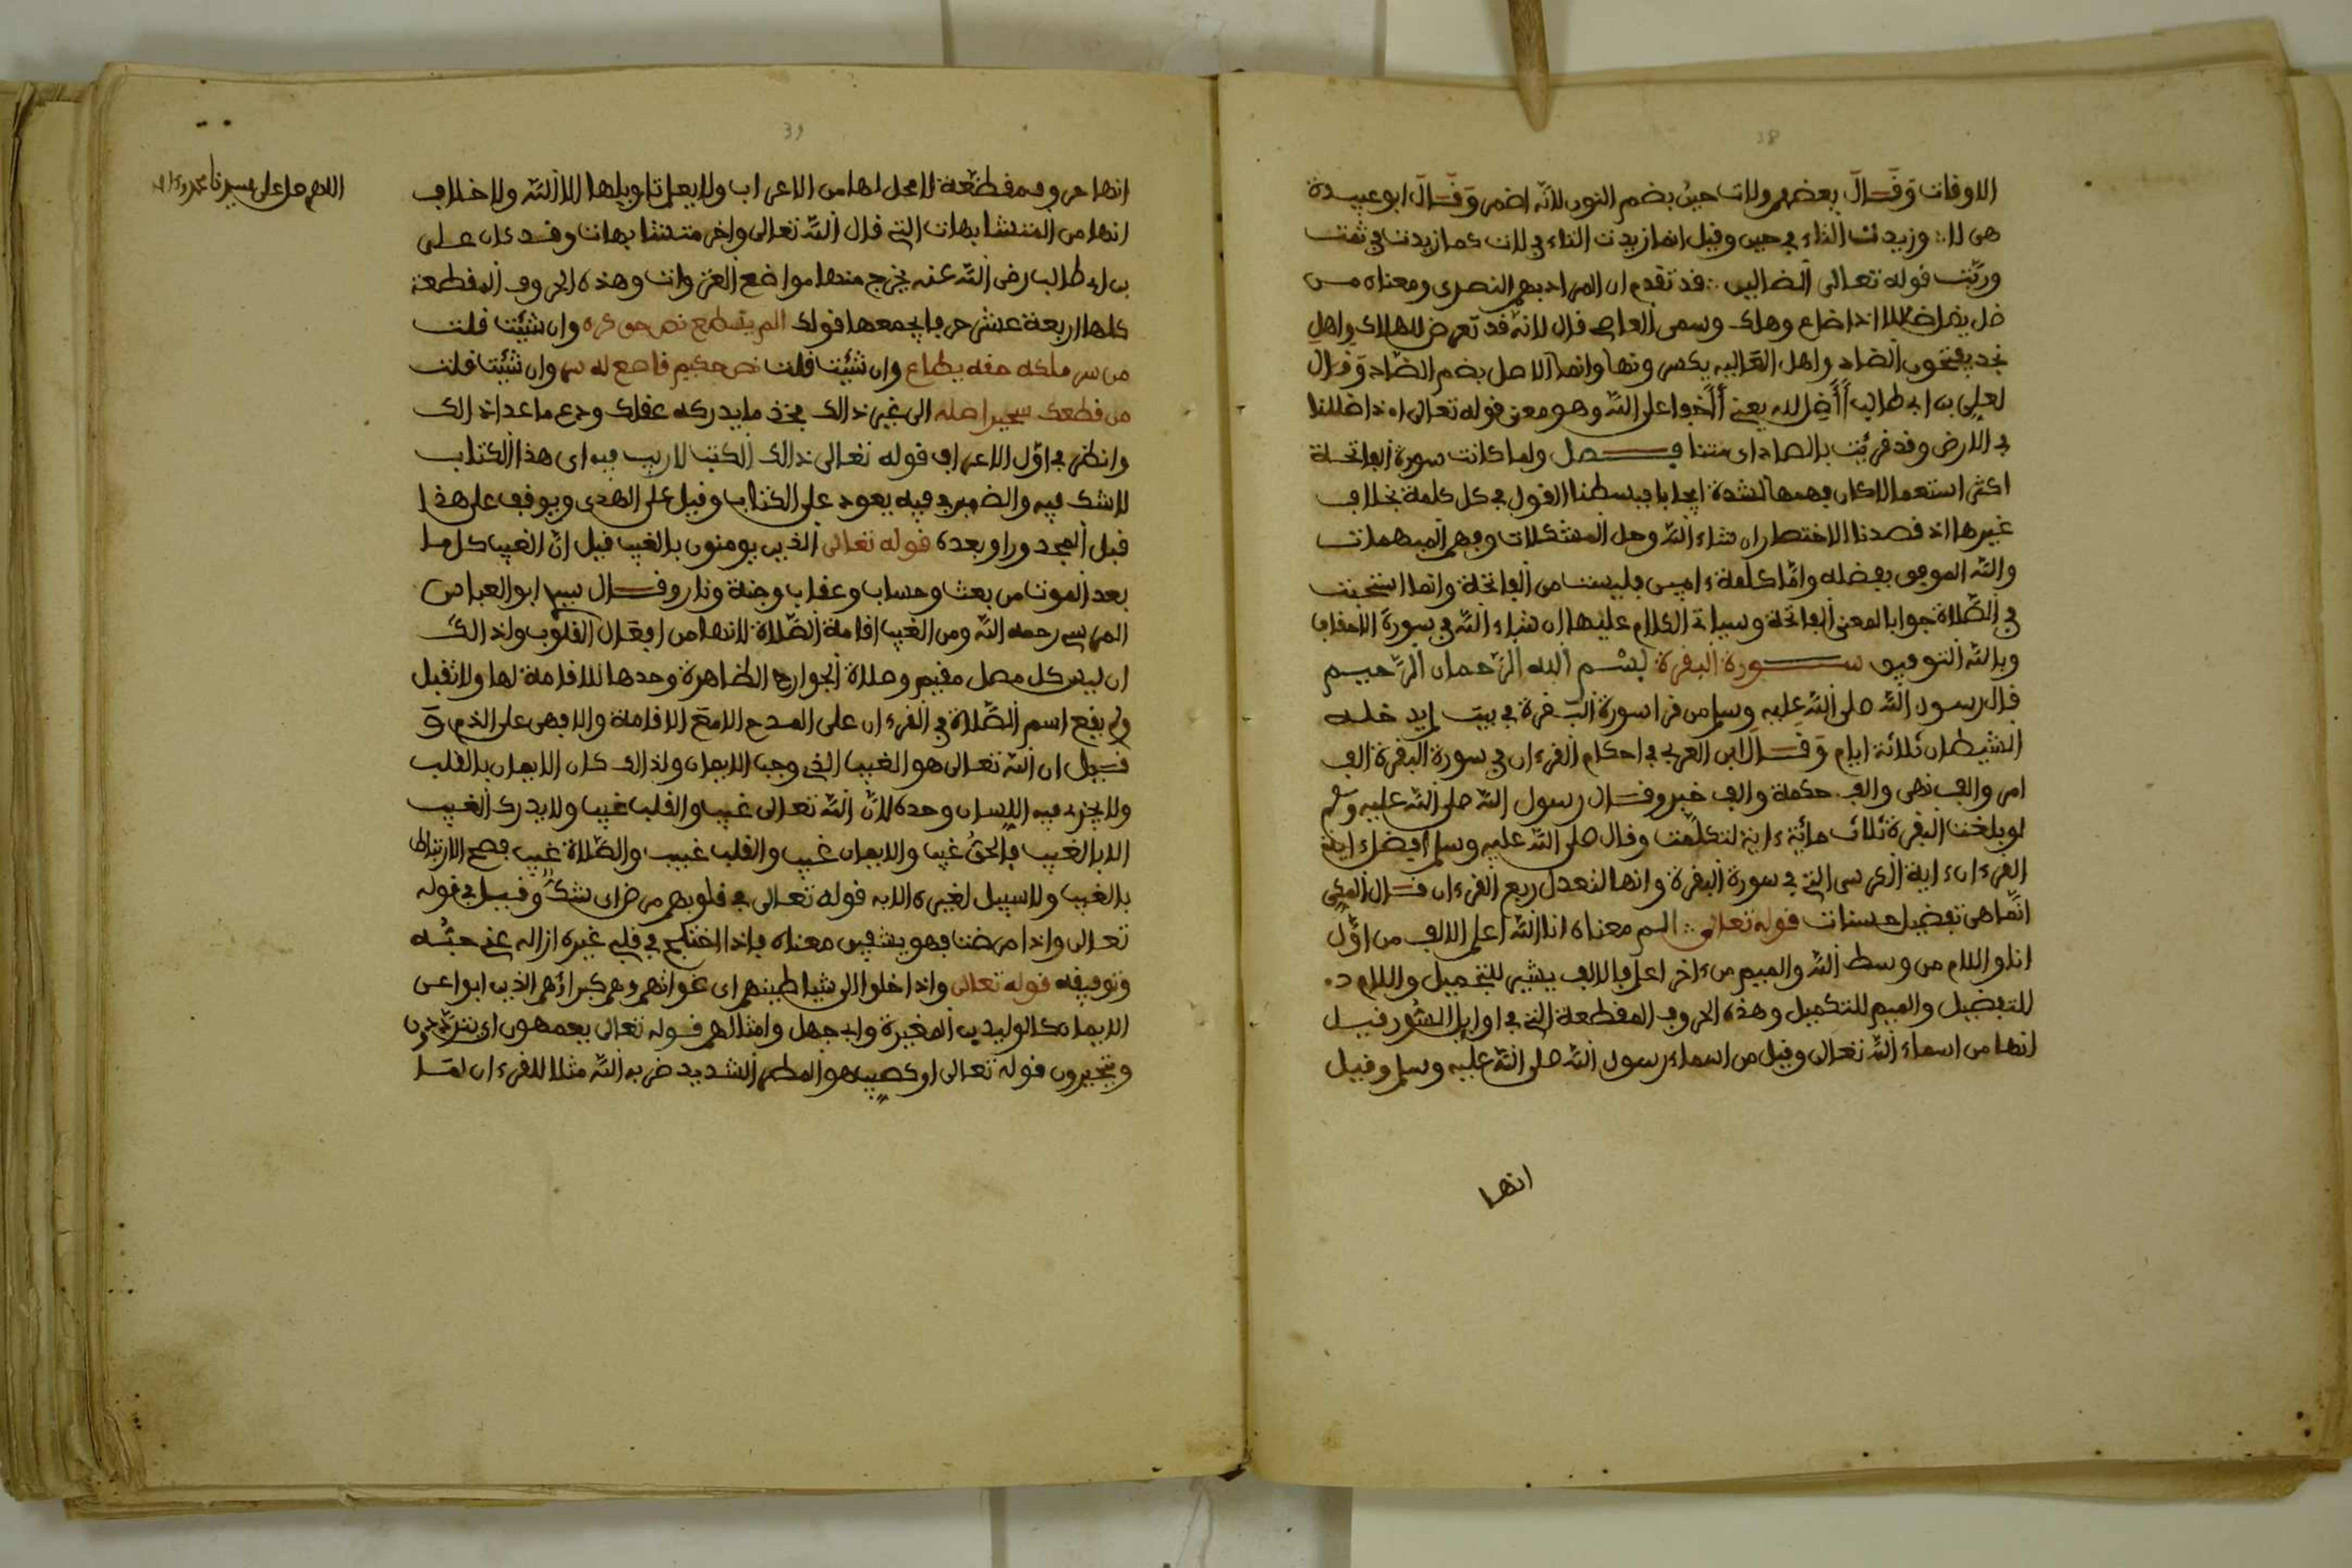 38
الاوقات وَقَالَ بعضهم ولات حينُ بضم النون لانّه اضمر وَقَالَ ابو عبيدة
هى لا ∴ وزيدت التاء في حين وقيل انما زيدت التاء في لات كما زيدت في ثمت
وربّت قوله تعالى الضالين ∴ قد تقدم ان المراد بهم النصرى ومعناه من
ضل يضل ضلالا اذا ضاع وهلك وسمى العاصي ضال لانه قد تعرض للهلاك واهل
نجد يفتحون الضاد واهل العالية يكسرونها وانما الاصل بضم الضاد وَقال
لعلي بن ابي طالب أَأَضِل الله يعني أَأَخفوا على الله وهو معنى قوله تعالى اءذا ضللنا
في الارض وقد قرئت بالصاد اى متنا فصل ولما كانت سورة الفاتحة
اكثر استعمالا كان فهمها لشدة ايجابا فبسطنا القول في كل كلمة بخلاف
غيرها اذ قصدنا الاختصار ان شاء الله وحل المشكلات وفهم المبهمات
والله الموفق بفضله وامّا كلمة ءامين فليست من الفاتحة وانما استحبت
في الصّلاة جوابا لمعنى الفاتحة وسياتي الكلام عليها ان شاء الله في سورة الاحقاف
وبالله التوفيق سورة البقرة بسم الله الرّحمان الرّحيم
قال رسول الله صلى الله عليه وسلم من قرا سورة البقرة في بيت لم يدخله
الشيطان ثلاثة ايام وَقال ابن العربي في احكام القرءان في سورة البقرة الف
امر والف نهى والف حكمة والف خبر وقال رسول الله صلى الله عليه وسلم
لو بلغت البقرة ثلاث مائة ءاية لتكلمت وقال صلى الله عليه وسلم افضل ءاية
القرءان ءاية الكرسى التي في سورة البقرة وانها لتعدل ربع القرءان قال المكي
انما هى تفضيل حسنات قوله تعالى ∴ الم معناه انا الله اعلم الالف من اوّل
انا واللام من وسط الله والميم من ءاخر اعلم فالالف يشير للتجميل واللام د.
للتفضيل والميم للتكميل وهذه الحروف المقطعة التي في اوايل السُّور قيل
انها من اسماء الله تعالى وقيل من اسماء رسول الله صلى الله عليه وسلم وقيل
انها
39
اللهم صل على سيدنا محمد
انها حروف مقطّعة لا محل لها من الاعراب ولا يعلم تاويلها الا الله ولا خلاف
انها من المتشابهات التي قال الله تعالى واخر متشابهات وقد كان على
بن ابي طالب رضى الله عنه يخرج منها مواضع الغزوات وهذه الحروف المقطعة
كلها اربعة عشر حرفا يجمعها قولك الم يسطع نص حق كره وان شئت قلت
من سر ملكه حقه يطاع وان شئت قلت نص حكيم قاطع له سر وان شئت قلت
من قطعك سحيرا صله الى غير ذالك فخذ ما يدركه عقلك ودع ما عدا ذالك
وانظر في اوّل الاعراف قوله تعالى ذالك الكتب لا ريب فيه اى هذا الكتاب
لا شك فيه والضمير في فيه يعود على الكتاب وقيل على الهدى ويوقف على هذا
قبل المجرور او بعده قوله تعالى الذين يومنون بالغيب قيل انّ الغيب كل ما
بعد الموت من بعث وحساب وعقاب وجنة ونار وقال سيدي ابو العباس
المرسى رحمه الله ومن الغيب اقامة الصّلاة لانها من افعال القلوب ولذالك
ان ليس كل مصل مقيم وصلاة الجوارح الظاهرة وحدها لا اقامة لها ولا تقبل
ولم يقع اسم الصّلاة في القرءان على المدح الا مع الاقامة والا فهى على الذم وَ
قيل ان الله تعالى هو الغيب الذي وجب الايمان ولذالك كان الايمان بالقلب
ولا يجزء فيه اللسان وحده لانّ الله تعالى غيب والقلب غيب ولا يدرك الغيب
الا بالغيب فالحق غيب والايمان غيب والقلب غيب والصّلاة غيب فصح الارتباط
بالغيب ولا سبيل لغيره الا به قوله تعالى في قلوبهم مرض اى شك وقيل في قوله
تعالى واذا مرضت فهو يشفين معناه فاذا اختلج في قلبي غيره ازاله عني حبُّه
وتوفيقه قوله تعالى واذا خلوا الى شياطينهم اى غواتهم وهم كبراؤهم الذين ابوا عن
الايمان كالوليد بن المغيرة وابي جهل وامثالهم قوله تعالى يعمهون اى يتردّدون
ويتحيرون قوله تعالى او كصيب هو المطر الشديد ضربه الله مثلا للقرءان لمّا